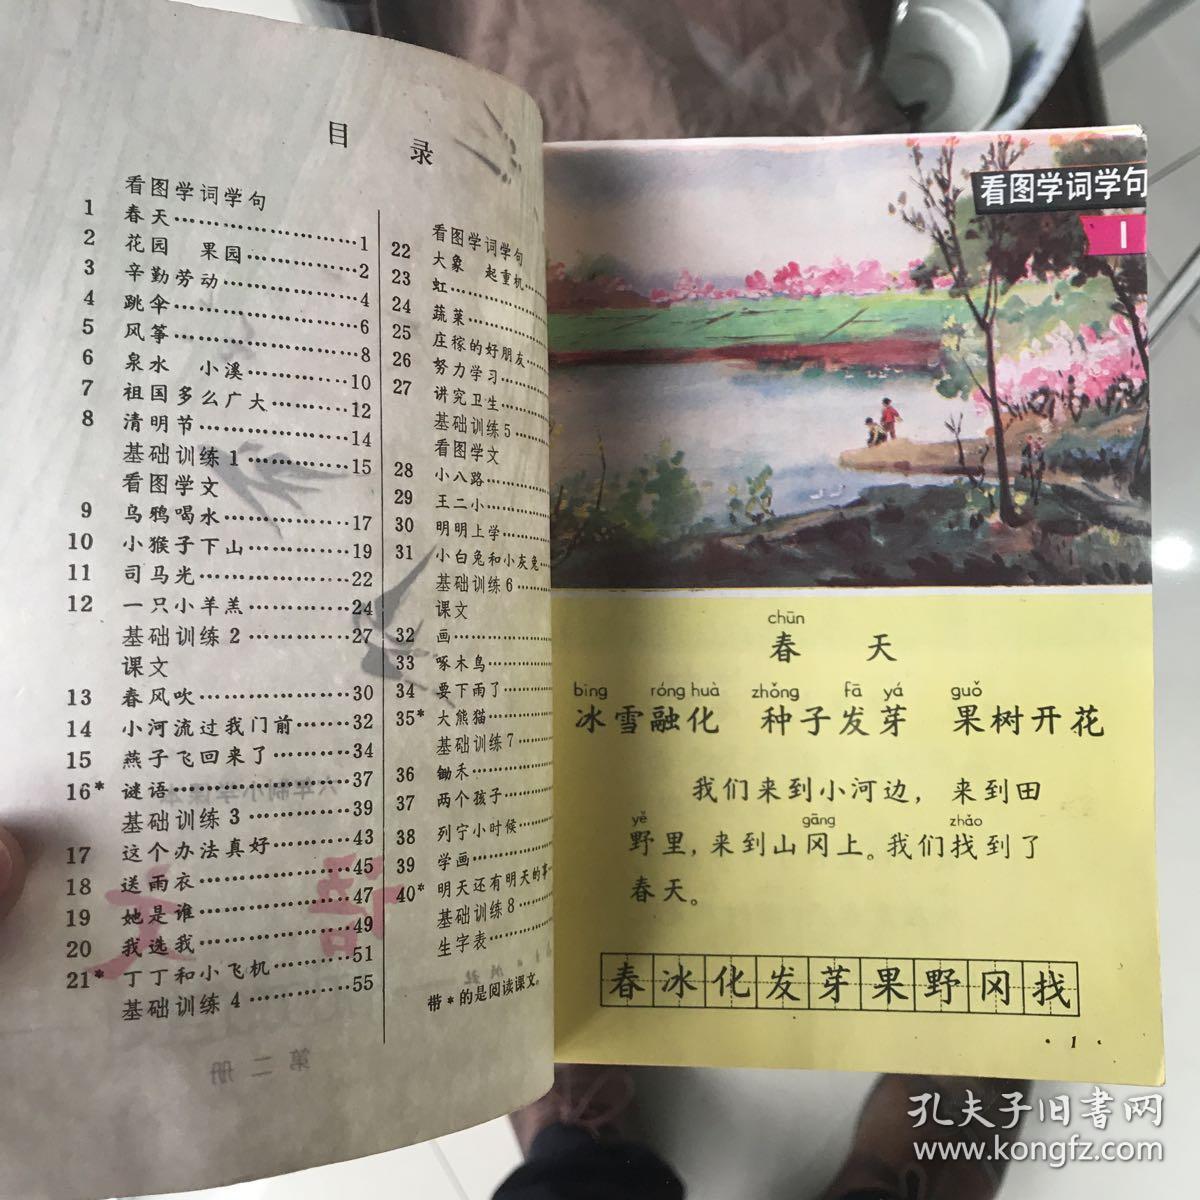 目 录
看图学词学句
1 春天……………………1
2 花园 果园……………2
3 辛勤劳动………………4
4 跳伞……………………6
5 风筝……………………8
6 泉水 小溪……………10
7 祖国多么广大…………12
8 清明节…………………14
基础训练1……………15
看图学文
9 乌鸦喝水………………17
10 小猴子下山……………19
11 司马光…………………22
12 一只小羊羔……………24
基础训练2……………27
课文
13 春风吹…………………30
14 小河流过我门前………32
15 燕子飞回来了…………34
16* 谜语……………………37
基础训练3……………39
17 这个办法真好…………43
18 送雨衣…………………45
19 她是谁…………………47
20 我选我…………………49
21* 丁丁和小飞机…………51
基础训练4……………55
看图学词学句
22 大象 起重机……
23 虹…………
24 蔬菜…………
25 庄稼的好朋友……
26 努力学习……
27 讲究卫生……
基础训练5……
看图学文
28 小八路……
29 王二小……
30 明明上学……
31 小白兔和小灰兔……
基础训练6……
课文
32 画…………
33 啄木鸟……
34 要下雨了……
35* 大熊猫……
基础训练7……
36 锄禾……
37 两个孩子……
38 列宁小时候……
39 学画……
40* 明天还有明天的事……
基础训练8……
生字表……
带*的是阅读课文。
六年制小学课本
语
文
第二册
看图学词学句
1
chūn
春 天
bīng róng huà zhǒng fā yá guǒ
冰雪融化 种子发芽 果树开花
我们来到小河边，来到田
yě gāng zhǎo
野里，来到山冈上。我们找到了
春天。
春冰化发芽果野冈找
·1·
孔夫子旧书网
www.kongfz.com